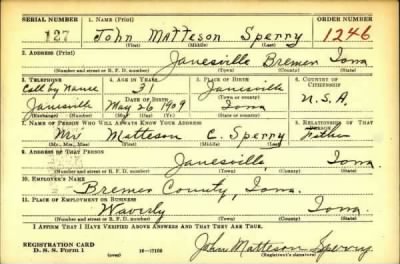 SERIAL NUMBER 1. NAME (Print) ORDER NUMBER
127 John Matteson Sperry 1246
(First) (Middle) (Last)
2. ADDRESS (Print)
Janesville Bremer Iowa
(Number and street or R. F. D. number) (Town) (County) (State)
3. TELEPHONE 4. AGE IN YEARS 5. PLACE OF BIRTH 6. COUNTRY OF CITIZENSHIP
Call by Name 31 Janesville
DATE OF BIRTH (Town or county)
Janesville May 26 1909 Iowa U.S.A.
(Exchange) (Number) (Mo.) (Day) (Yr.) (State or country)
7. NAME OF PERSON WHO WILL ALWAYS KNOW YOUR ADDRESS 8. RELATIONSHIP OF THAT PERSON
Mr Matteson C. Sperry Father
(Mr., Mrs., Miss) (First) (Middle) (Last)
9. ADDRESS OF THAT PERSON
Janesville Iowa
(Number and street or R. F. D. number) (Town) (County) (State)
10. EMPLOYER'S NAME
Bremer County, Iowa.
11. PLACE OF EMPLOYMENT OR BUSINESS
Waverly Iowa.
(Number and street or R. F. D. number) (Town) (County) (State)
I AFFIRM THAT I HAVE VERIFIED ABOVE ANSWERS AND THAT THEY ARE TRUE.
REGISTRATION CARD
D. S. S. Form 1 (over) John Matteson Sperry
(Registrant's signature)